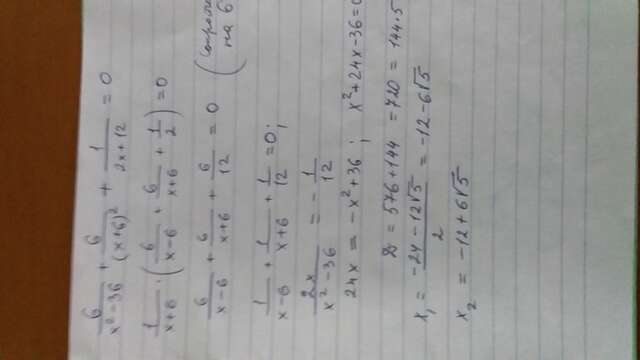 6/(x²-36) + 6/(x+6)² + 1/(2x+12) = 0
1/(x+6) · (6/(x-6) + 6/(x+6) + 1/2) = 0
6/(x-6) + 6/(x+6) + 6/12 = 0 (
на 6
1/(x-6) + 1/(x+6) + 1/12 = 0;
2x/(x²-36) = - 1/12
24x = -x²+36 ; x²+24x-36=0
D = 576+144 = 720 = 144·5
x₁ = (-24-12√5)/2 = -12-6√5
x₂ = -12+6√5